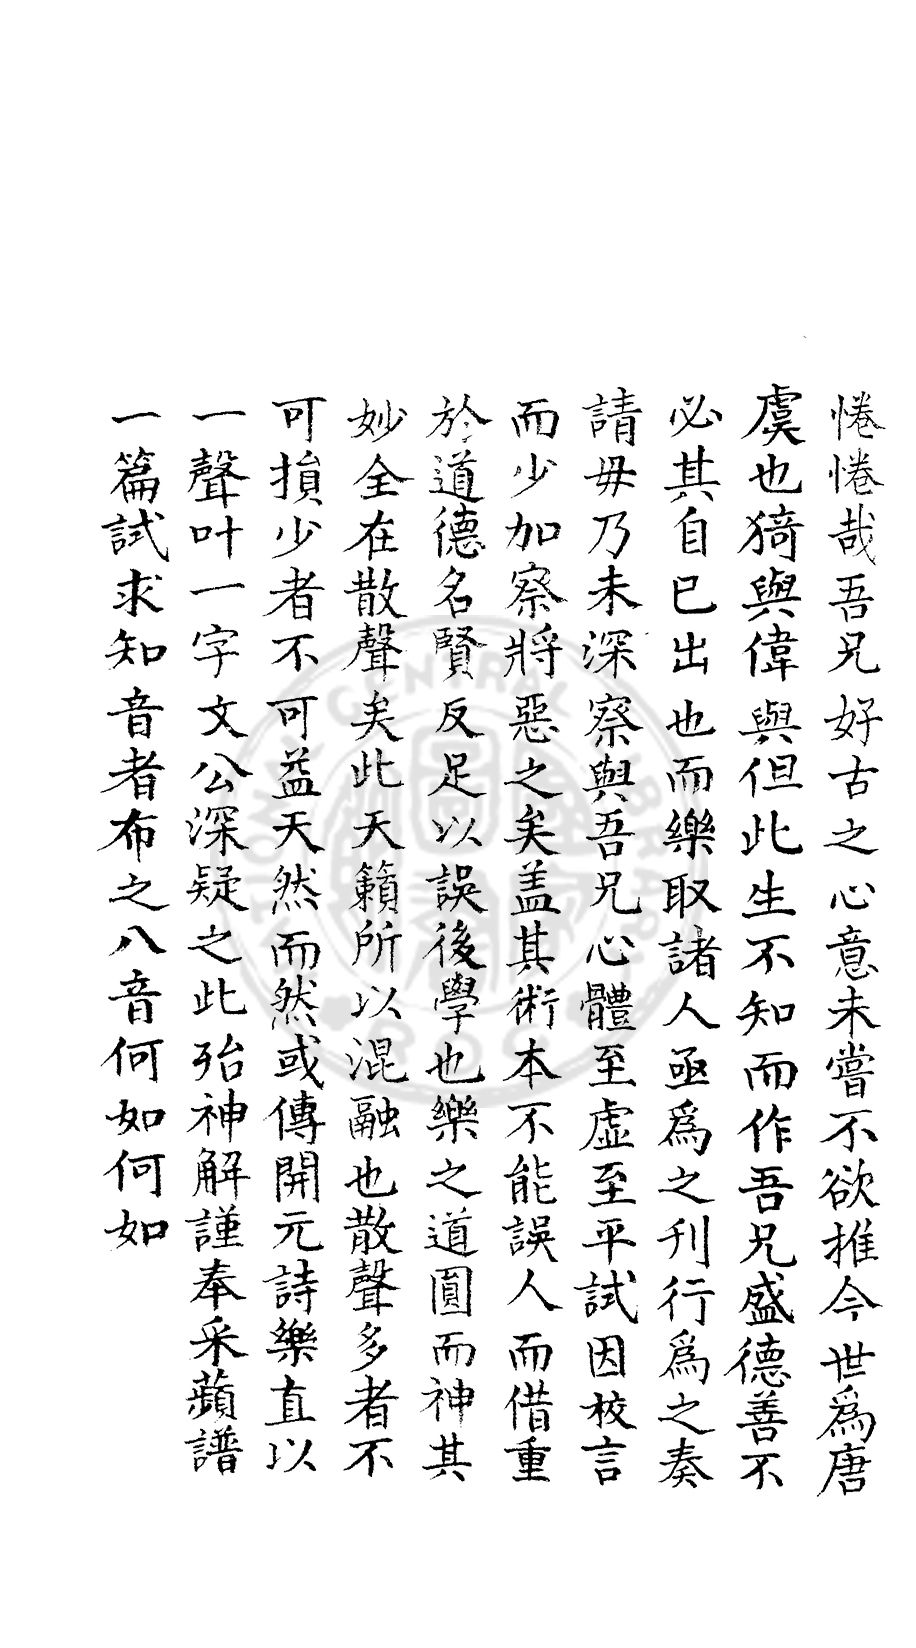 惓惓哉吾兄好古之心意未嘗不欲推今世爲唐
虞也猗與偉與但此生不知而作吾兄盛德善不
必其自己出也而樂取諸人亟爲之刋行爲之奏
請毋乃未深察與吾兄心體至虛至平試因校言
而少加察將惡之矣盖其術本不能誤人而借重
於道德名賢反足以誤後學也樂之道圓而神其
妙全在散聲矣此天籟所以混融也散聲多者不
可損少者不可益天然而然或傳開元詩樂直以
一聲叶一字文公深疑之此殆神解謹奉采蘋譜
一篇試求知音者布之八音何如何如
NATIONAL CENTRAL LIBRARY
R.O.C